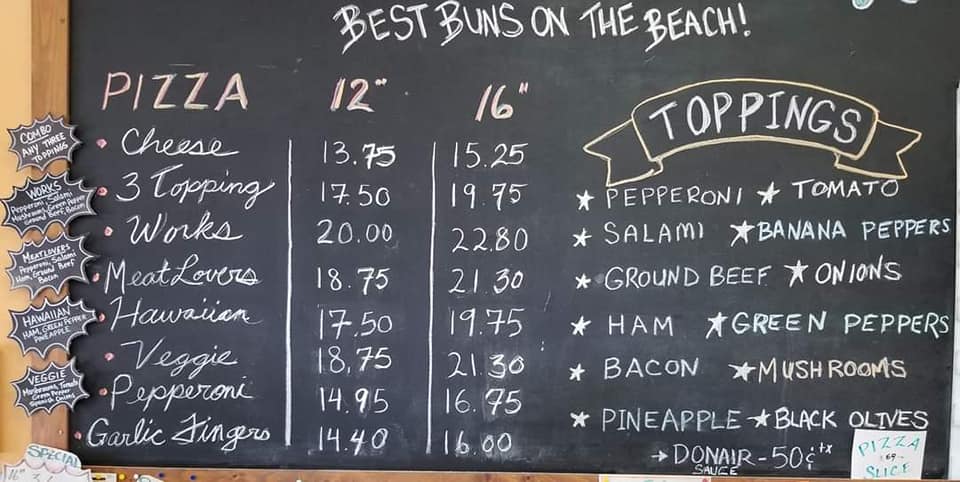 BEST BUNS ON THE BEACH!
PIZZA 12" 16"
Cheese 13.75 15.25
3 Topping 17.50 19.75
Works 20.00 22.80
Meat Lovers 18.75 21.30
Hawaiian 17.50 19.75
Veggie 18.75 21.30
Pepperoni 14.95 16.75
Garlic Fingers 14.40 16.00
TOPPINGS
PEPPERONI TOMATO
SALAMI BANANA PEPPERS
GROUND BEEF ONIONS
HAM GREEN PEPPERS
BACON MUSHROOMS
PINEAPPLE BLACK OLIVES
DONAIR - 50¢ +x
SAUCE
PIZZA
BY
SLICE
COMBO
ANY THREE
TOPPINGS
WORKS
Pepperoni, Salami
Mushrooms, Green Pepper
Ground Beef, Bacon
MEATLOVERS
Pepperoni, Salami
Ham, Ground Beef
Bacon
HAWAIIAN
HAM, GREEN PEPPER
PINEAPPLE
VEGGIE
Mushrooms, Tomato
Green Pepper
Spanish Onions
SPECIAL
16"